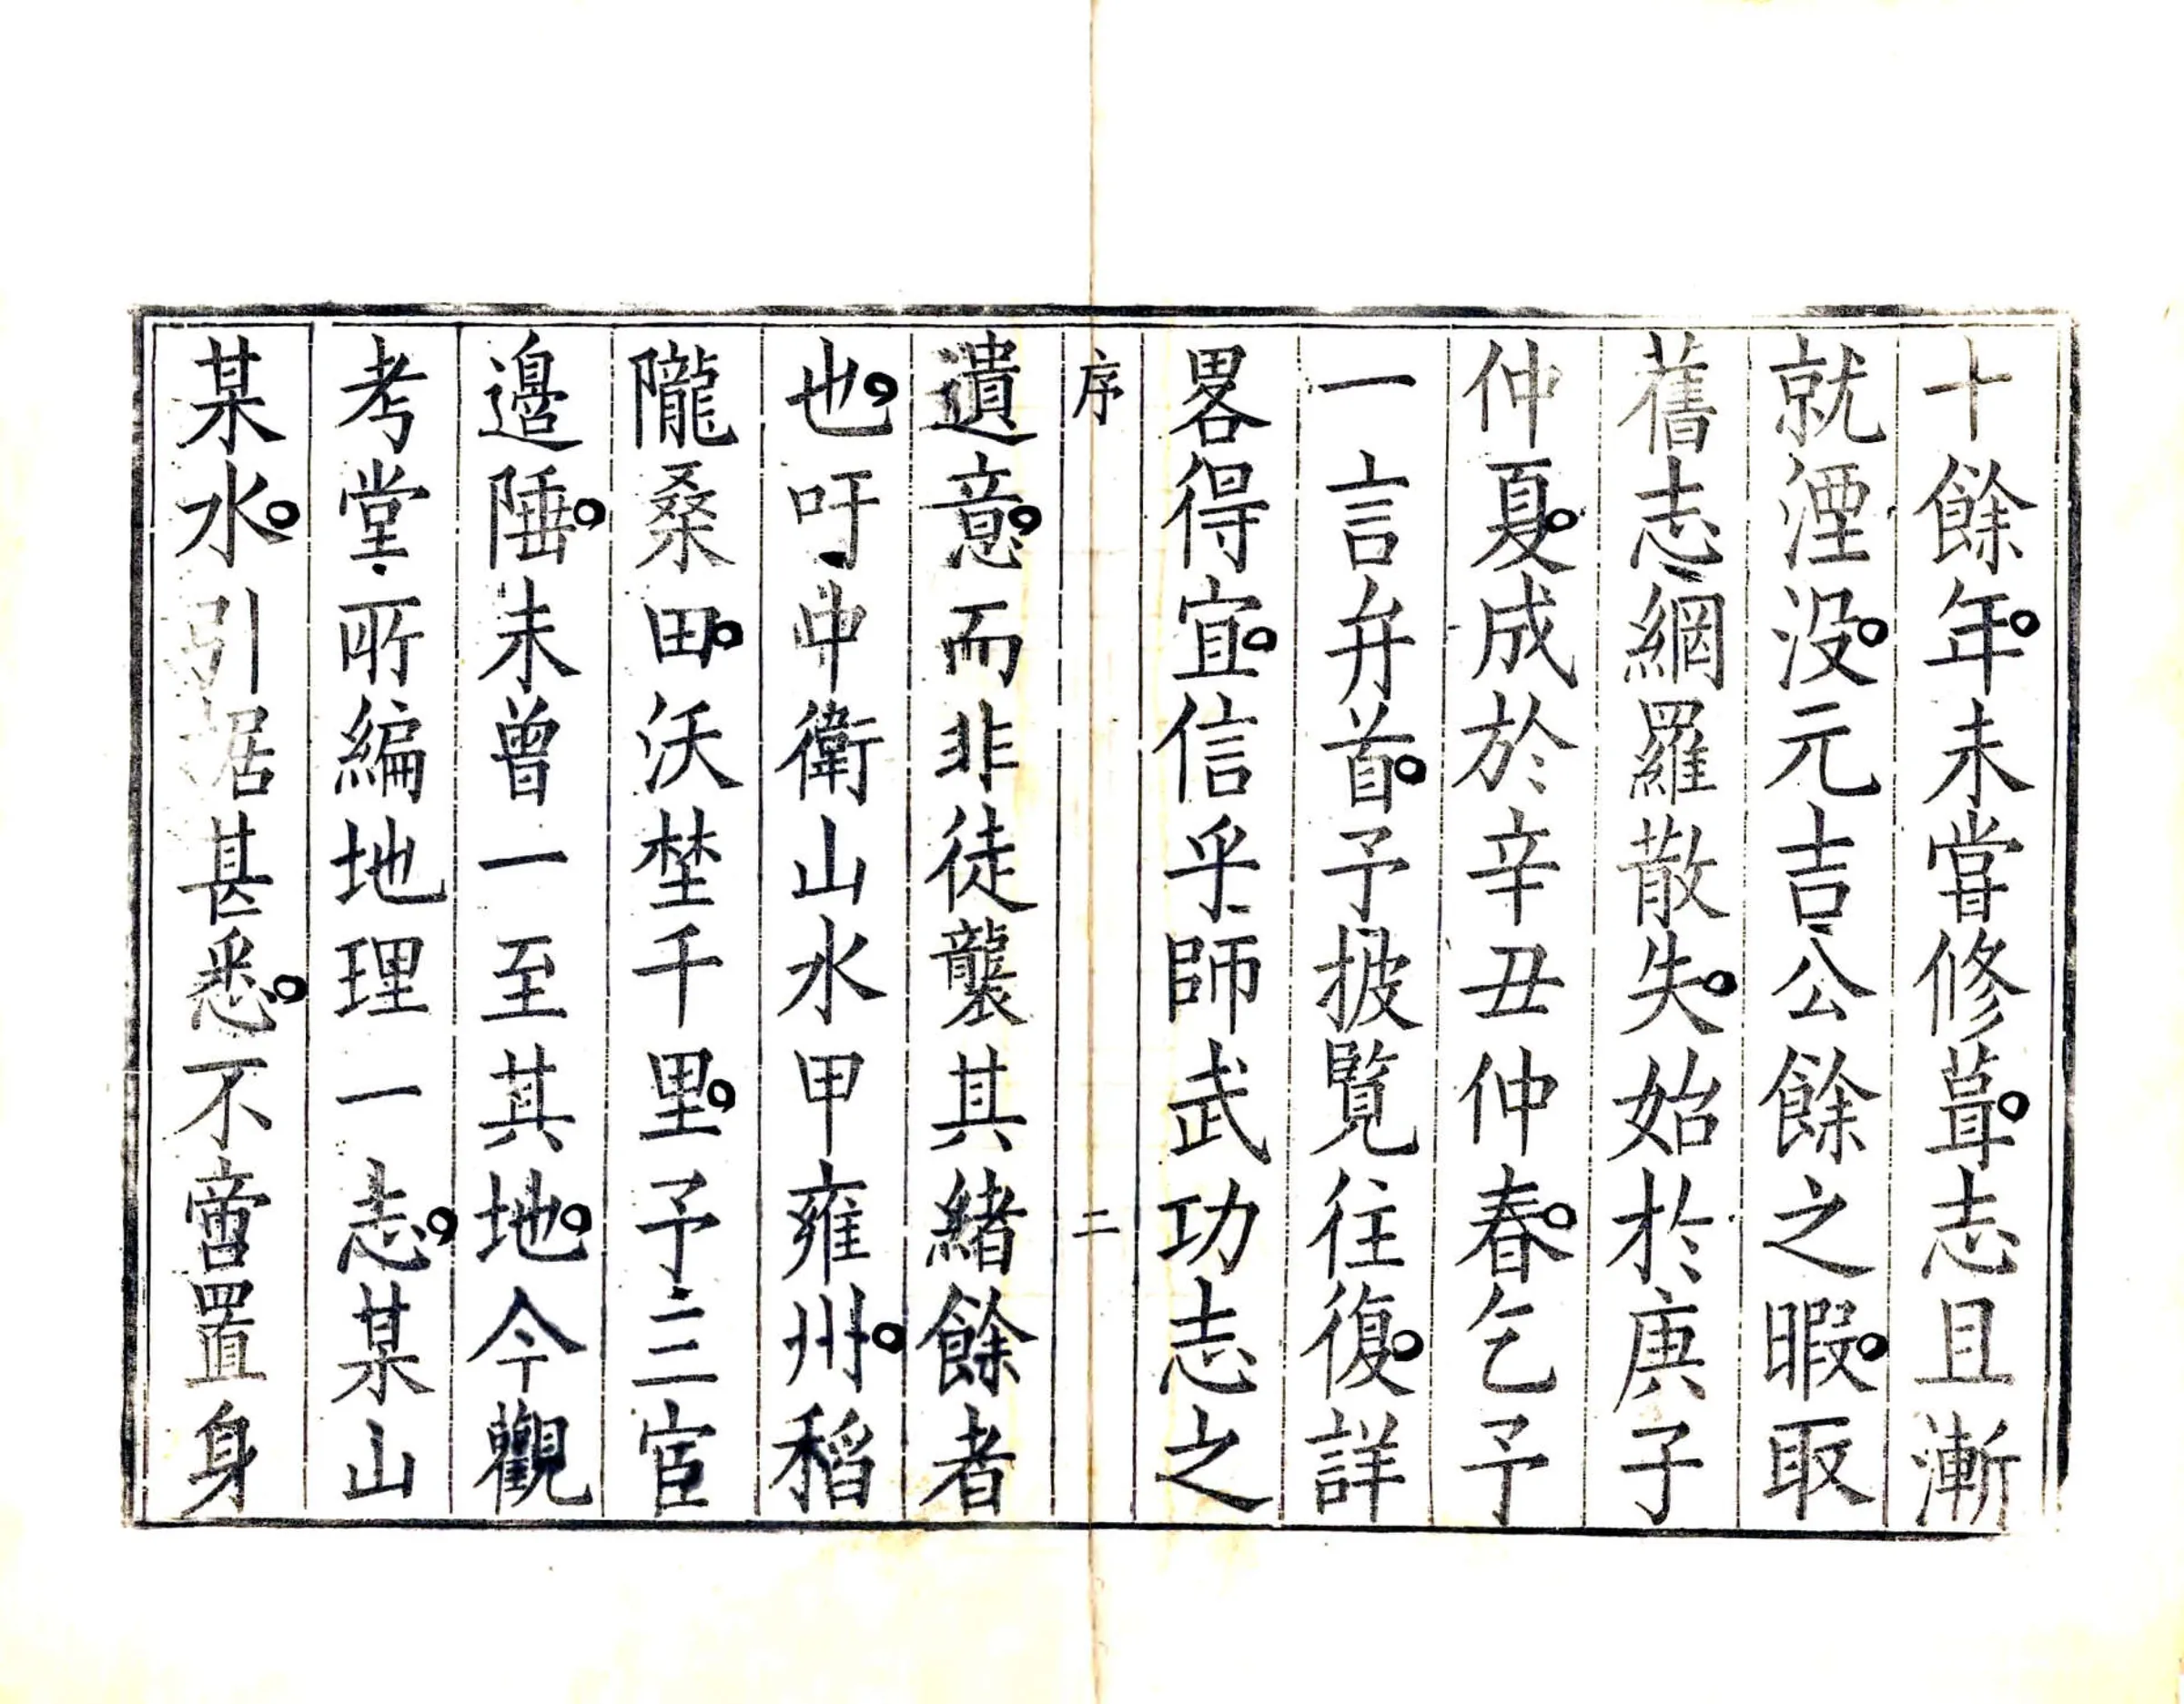 十餘年未嘗修葺志且漸
就湮没元吉公餘之暇取
舊志網羅散失始於庚子
仲夏成於辛丑仲春乞予
一言弁首予披覽往復詳
畧得宜信乎師武功志之
序 二
遺意而非徒襲其緒餘者
也吁中衛山水甲雍州稻
隴桑田沃埜千里予三宦
邊陲未曾一至其地今觀
考堂所編地理一志某山
某水引据甚悉不啻置身